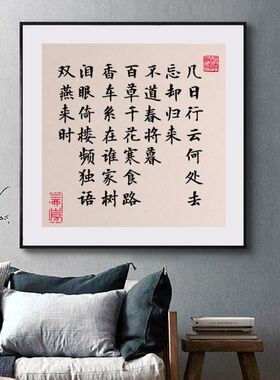 几日行云何处去
忘却归来
不道春将暮
百草千花寒食路
香车系在谁家树
泪眼倚楼频独语
双燕来时